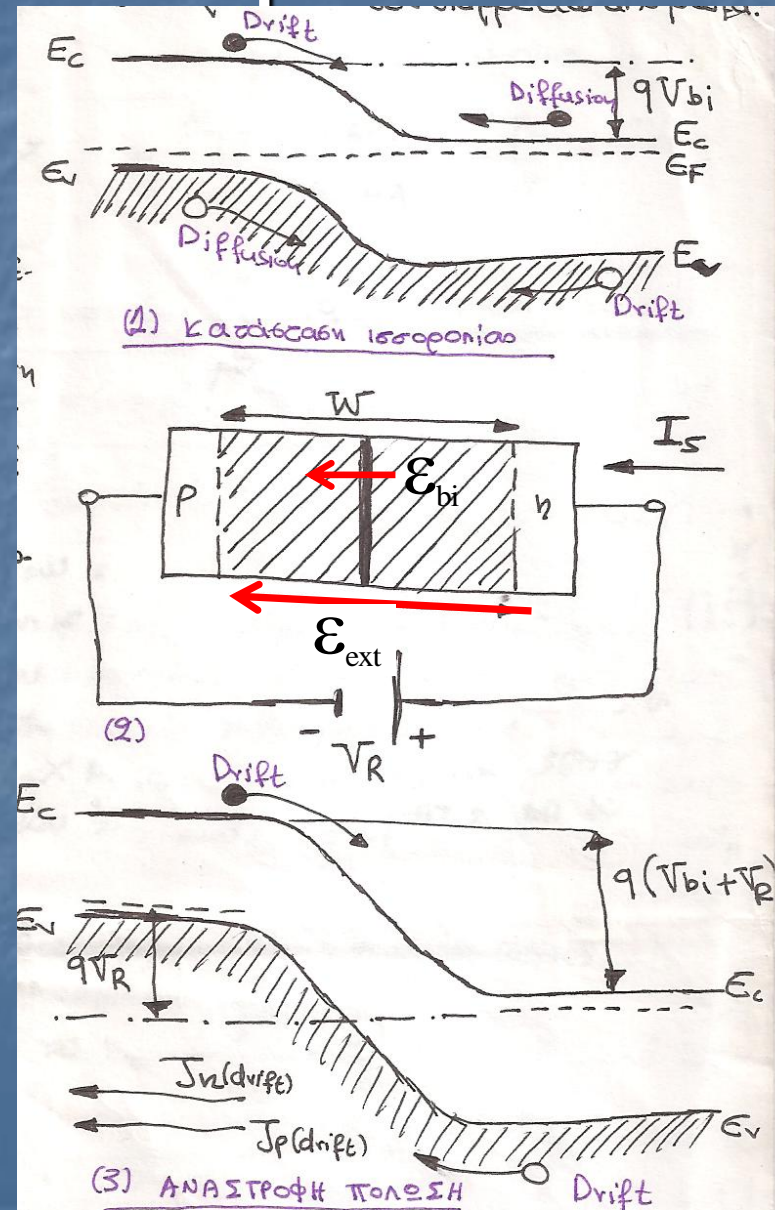 Drift
Ec
Diffusion
qVbi
Ec
EF
Ev
Diffusion
Ev
Drift
(1) Κατάσταση ισσοροπίας
W
Is
p
εbi
n
εext
(2)
-
VR
+
Drift
Ec
q(Vbi+VR)
Ev
qVR
Ec
Jn(drift)
Jp(drift)
Ev
(3) ΑΝΑΣΤΡΟΦΗ ΠΟΛΩΣΗ
Drift